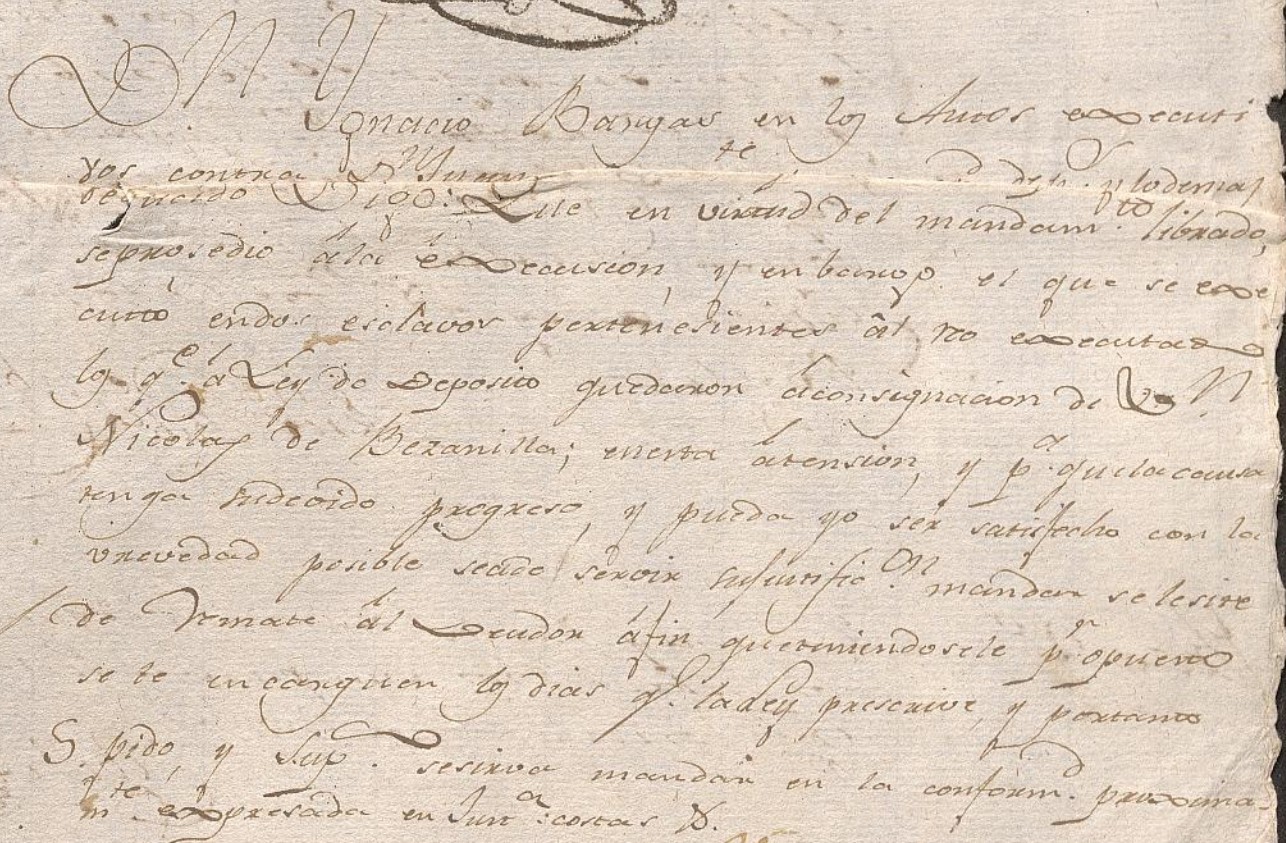 Dn Y
Ygnacio Bargas en los Autos executi
vos contra Dn Juan y lo demas
deducido Digo: Que en virtud del mandamto librado,
seprosedio âla êxecusion, y enbargo el que se exe
cutó endos esclavos pertenesientes âl reo executado
los qe â Ley de Deposito quedaron âconsignacion de Dn
Nicolas de Bezanilla; enesta âtension, y pa quelacausa
tenga sudevido progreso, y pueda yo ser satisfecho con la
vrevedad posible seade servir sujustificon mandar selesite
de remate âl Deudor âfin queteniendosele pr opuesto
se le encarguen los dias qe laLey prescrive, y portanto
S. pido, y Sup. sesirva mandar en la conformd proxima-
mte expresada en Justa costas &.